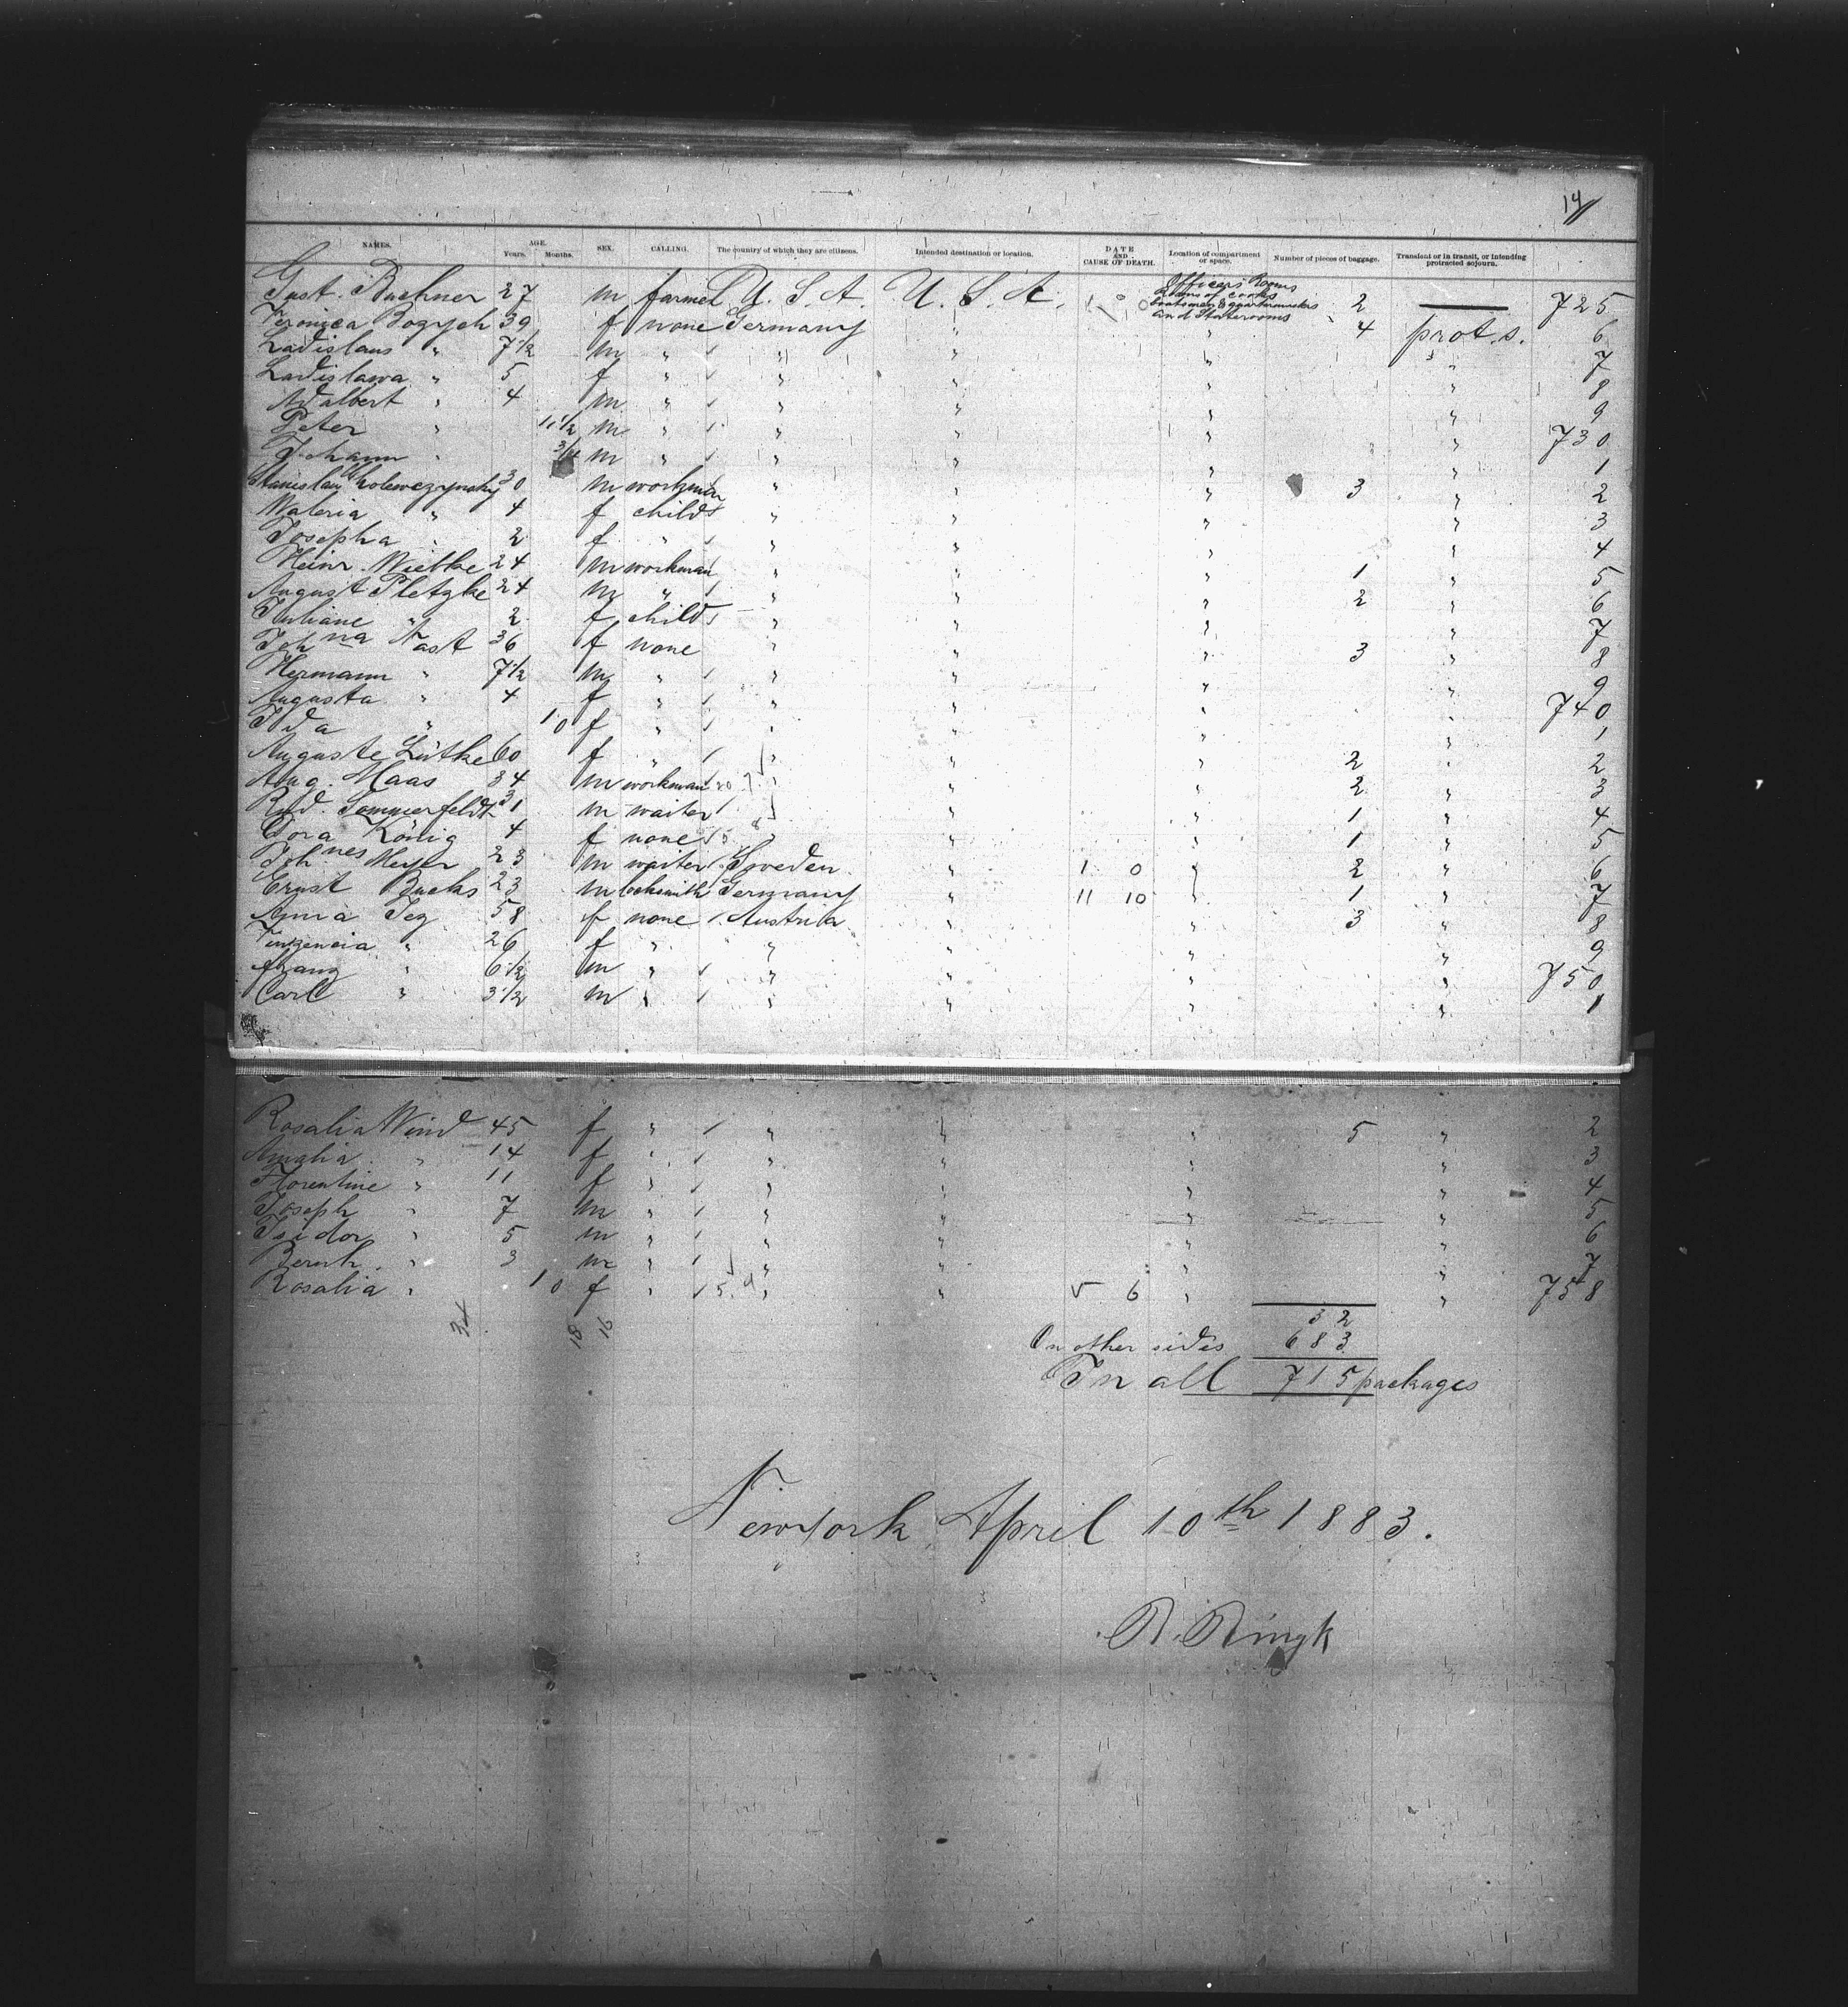 14
NAMES. AGE. Years. Months. SEX. CALLING. The country of which they are citizens. Intended destination or location. DATE AND CAUSE OF DEATH. Location of compartment or space. Number of pieces of baggage. Transient or in transit, or intending protracted sojourn.
Officers Rooms
Rooms of cooks
boatsmen & quartermasters
and Staterooms
Gust. Buchner 27 m farmer U. S. A. U. S. A. 1 0 2 — 725
Veronica Bogych 39 f none Germany " " 4 prot. s. 6
Ladislaus " 7 1/2 m " " " " " 7
Ladislawa " 5 f " " " " " 8
Adalbert " 4 m " " " " " 9
Peter " 11 1/2 m " " " " " 730
Johann " 3/4 m " " " " " 1
Stanislau 30 m workman " " " 3 " 2
Valeria " 4 f child " " " " 3
Josepha " 2 f " " " " " 4
Heinr. Wietke 24 m workman " " " 1 " 5
August Pletzke 24 m " " " " 2 " 6
Juliane " 2 f child " " " " 7
Johna Nast 36 f none " " " 3 " 8
Hermann " 7 1/2 m " " " " " 9
Augusta " 4 f " " " " " 740
Ida " 10 f " " " " " 1
Auguste Lütke 60 f " " " " 2 " 2
Aug. Maas 34 m workman " " " 2 " 3
Rud. Sommerfeldt 31 m waiter " " " 1 " 4
Dora König 4 f none " " " 1 " 5
Johnes Meyer 23 m waiter Sweden " 1 0 " 2 " 6
Ernst Bucks 23 m locksmith Germany " 11 10 " 1 " 7
Anna Jez 58 f none Austria " " 3 " 8
Vinzencia " 26 f " " " " " 9
Franz " 6 1/2 m " " " " " 750
Carl " 3 1/2 m " " " " " 1
Rosalia Wind 45 f " " " " 5 " 2
Amalia " 14 f " " " " " 3
Florentine " 11 f " " " " " 4
Joseph " 7 m " " " " " 5
Isidor " 5 m " " " " " 6
Berth. " 3 m " " " " " 7
Rosalia " 10 f " " " 5 6 " " 758
34 18 16
32
On other sides 683
In all 715 packages
New York April 10th 1883.
R. Ringk